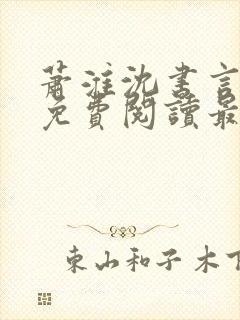 蕭淮沈書言
免費閱讀最
東山和子木下